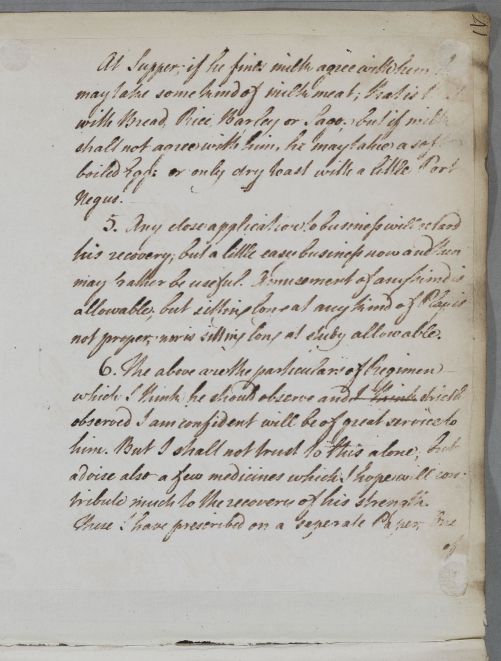 41
At Supper, if he finds milk agree with him he
may take some kind of milk meat; that is
with Bread, Rice Barley or Sago; but if milk
shall not agree with him, he may take a soft
boiled Egg: or only dry toast with a little Port
Negus.
5. Any close application to business will retard
his recovery; but a little easie business now and then
may rather be useful. Amusement of any kind is
allowable, but sitting long at any kind of Play is
not proper, nor is sitting long at study allowable.
6. The above are the particulars of Regimen
which I think he should observe and I think strictly
observed I am confident will be of great service to
him. But I shall not trust to this alone, but
advise also a few medicines which I hope will con-
tribute much to the recovery of his strength.
These I have prescribed on a seperate Paper, One
of